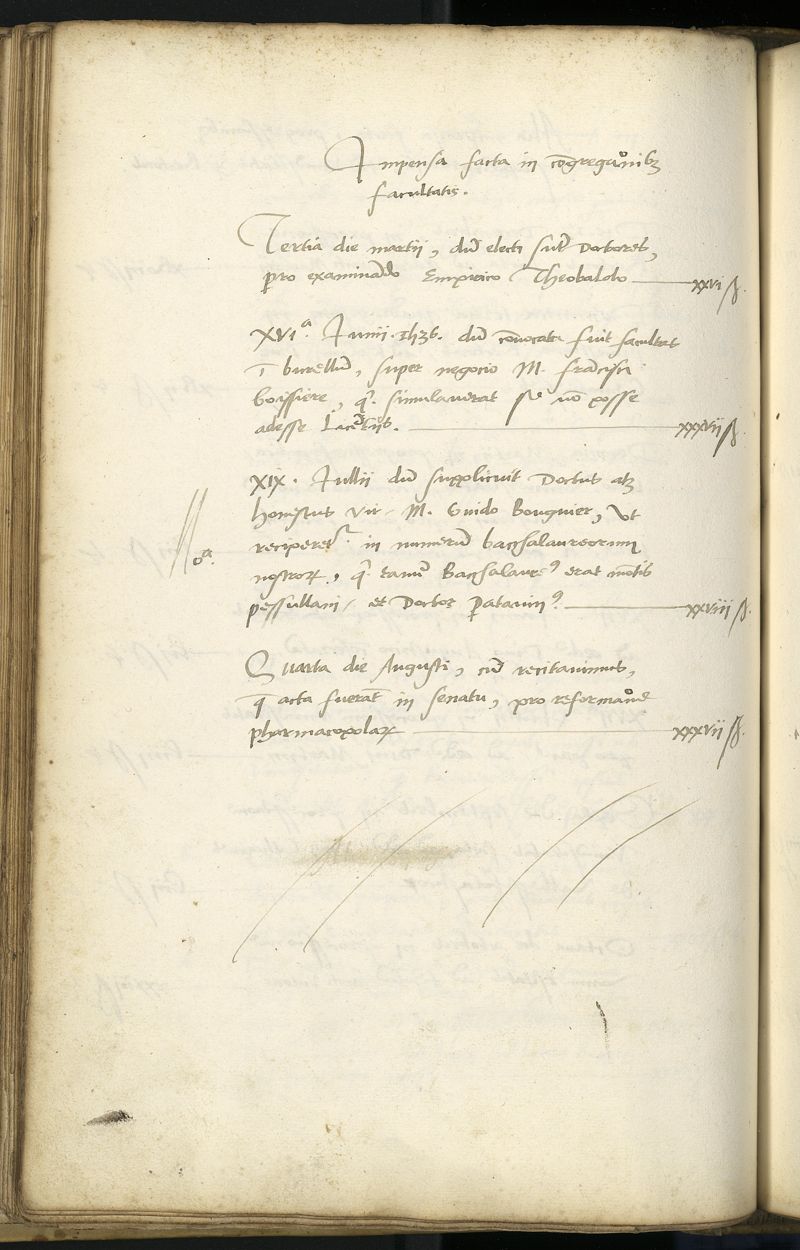 Impensa facta in cōgregatiōnibꝫ
facultatis.
Tertia die martii, dū electi sūt Doctores,
pro examinādo Empirico Theobaldo — xxvi ß.
XVIᵃ. Junii. 1536. dū cōvocata fuit facultas
ī burellum, super negocio M. Francisci
boissiere, q. simulaverat se nō posse
adesse Licētiis. — xxxvii ß.
XIX. Jullii dū supplicuit Doctus atqꝫ
honestus vir, M. Guido Bouguier, Ut
reciperetᵘʳ in numerū bacchalaureorum
nostroꝝ, q. tamē Bacchalaureꝰ erat mōtis
pessullani, et Doctor Patavinꝰ. — xxviii ß.
Quarta die Augusti, cū recitavimus,
q̄ acta fuerāt in senatu, pro reformatiōe
pharmacopolaꝝ — xxxvii ß.